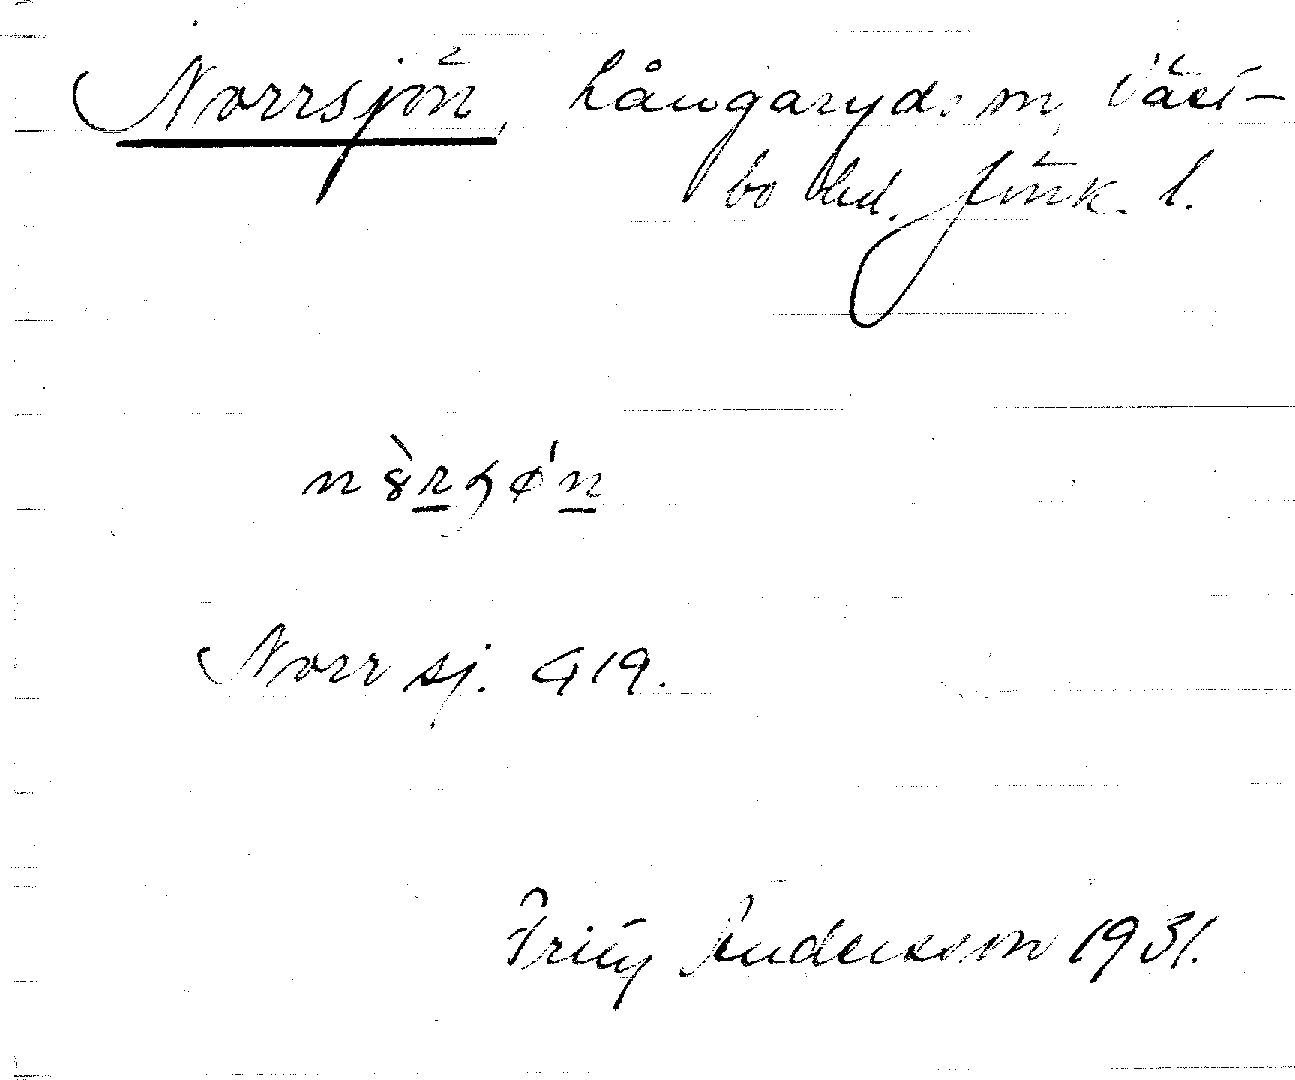 Norrsjön, Långaryds sn, Väst-
bo hd. Jönk. l.
n8̀rɧø'n
Norr sj. G 19.
Fritz Andersson 1931.